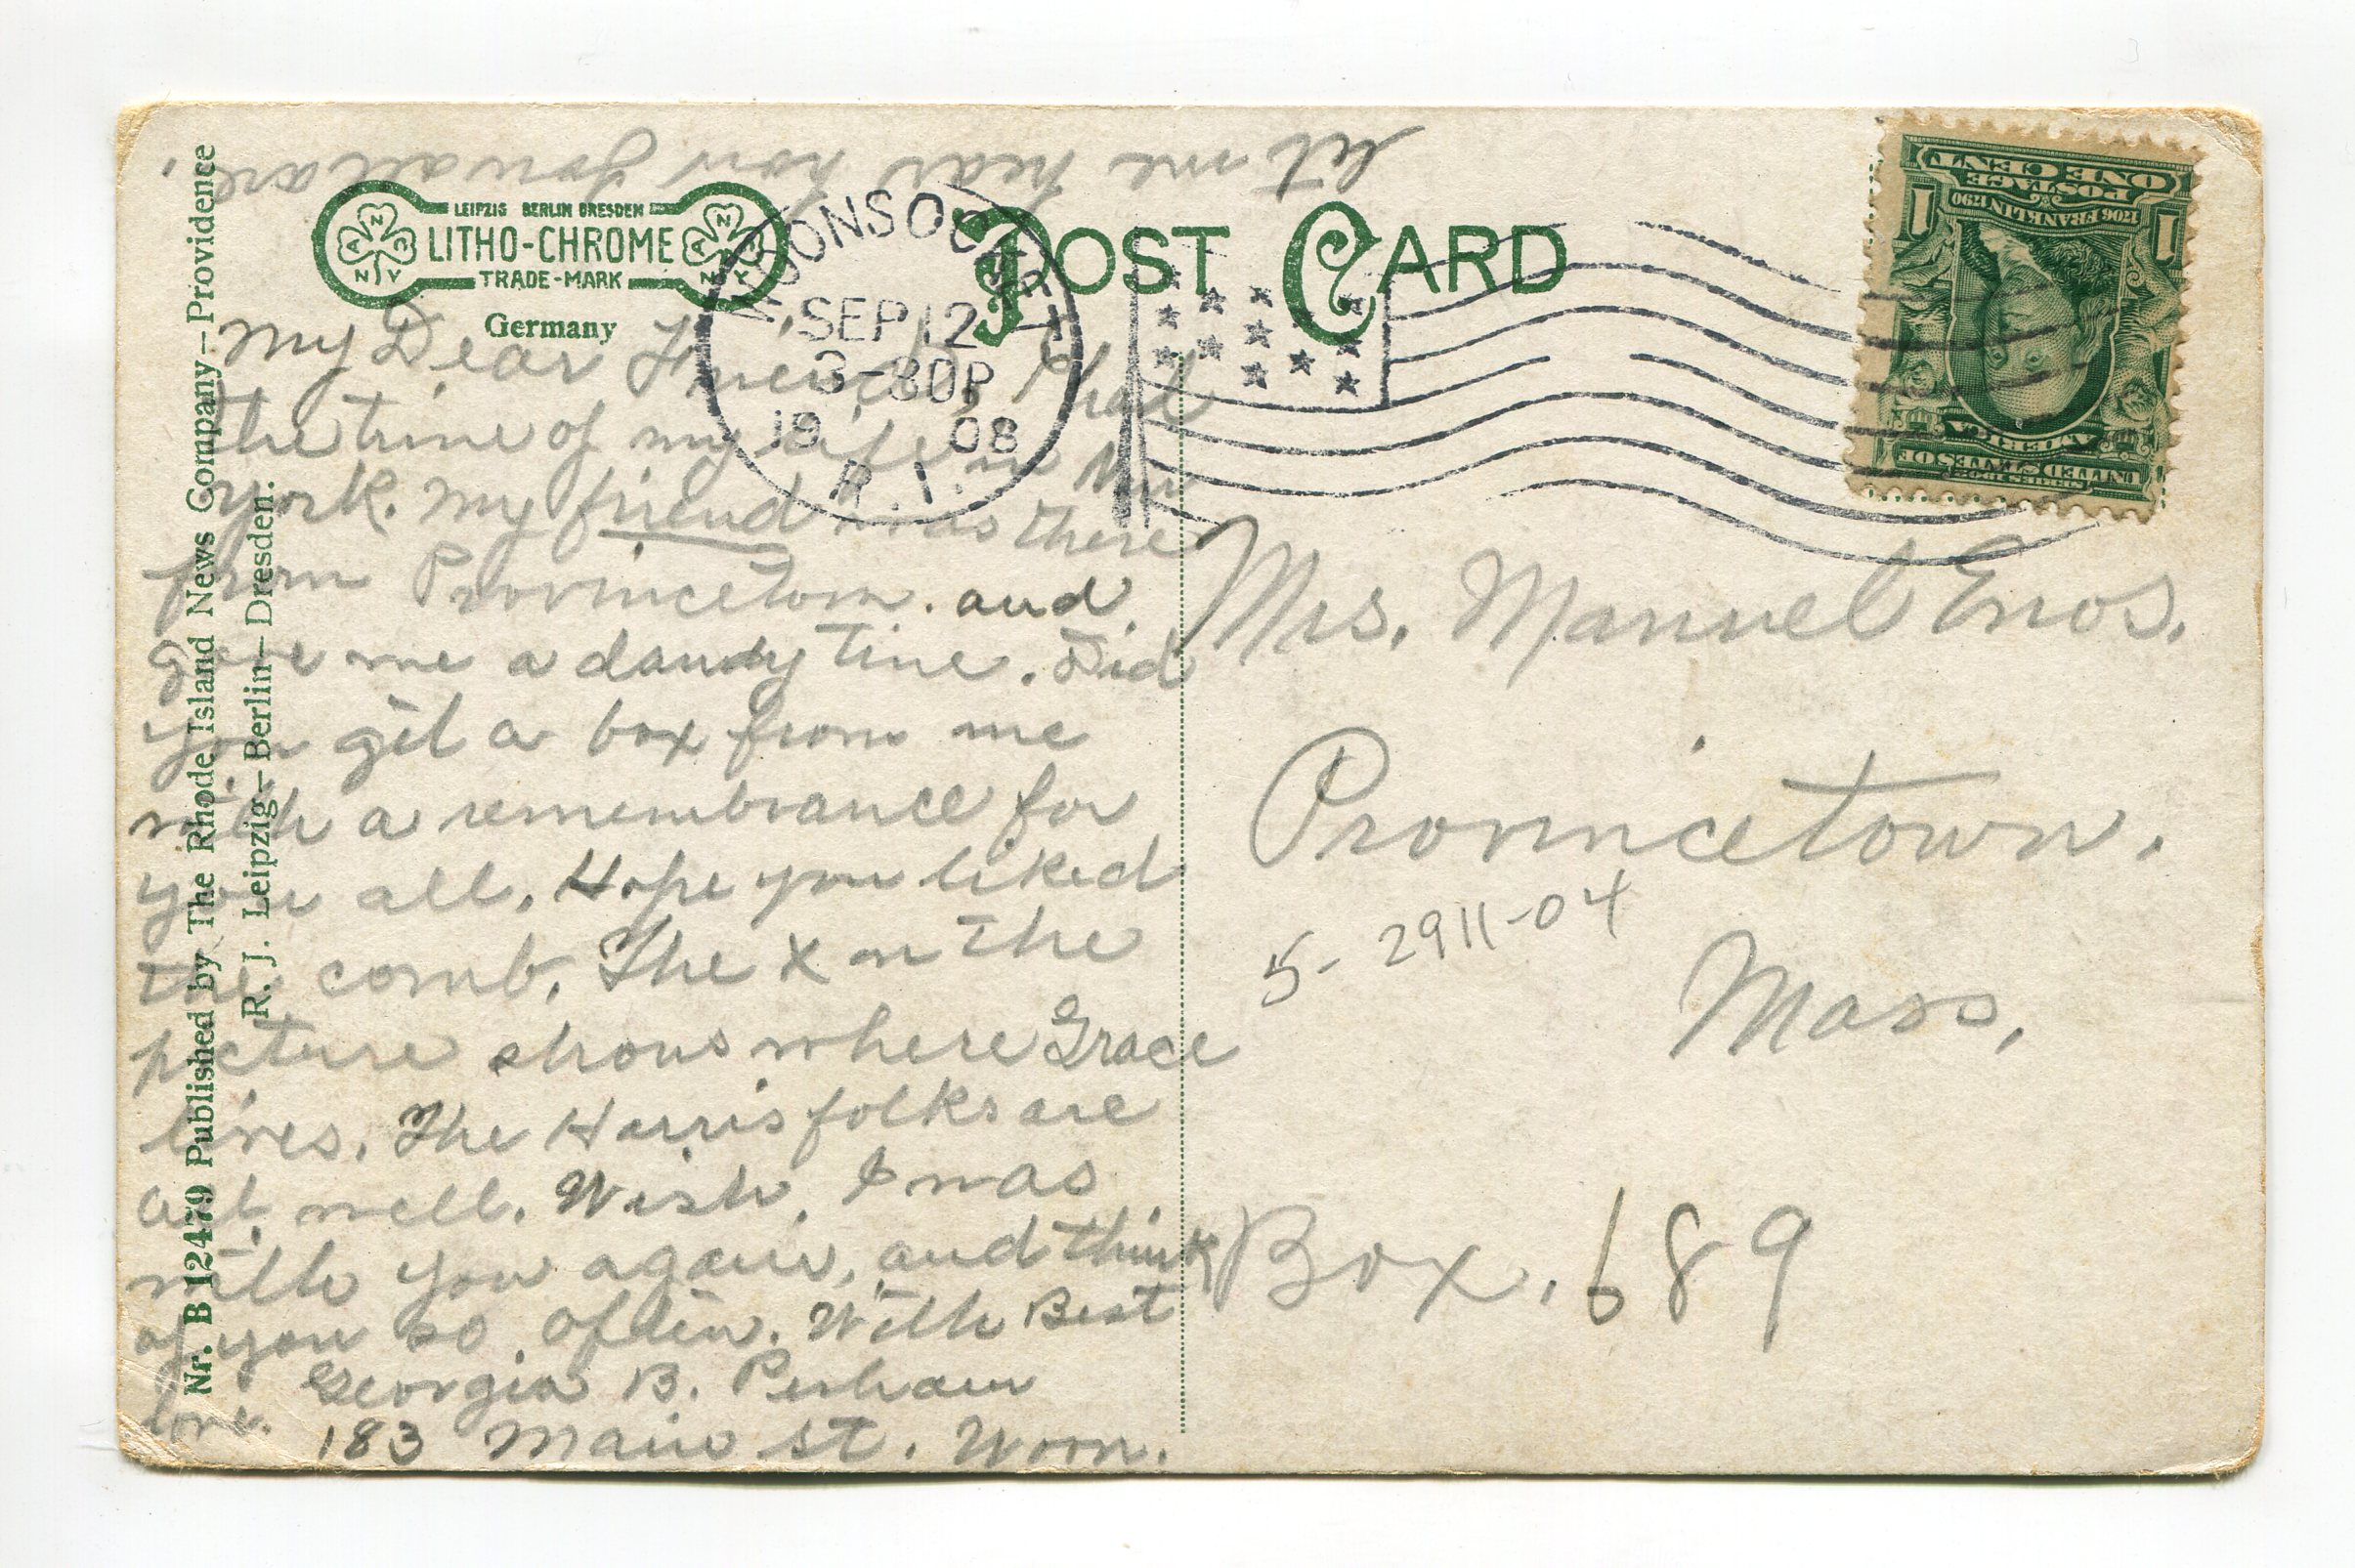 let me hear how you all are.
LEIPZIG BERLIN DRESDEN
LITHO-CHROME
TRADE-MARK
A N C N Y
A N C N Y
Germany
POST CARD
WOONSOCKET
SEP 12
3-30P
19 08
R.I.
ONE CENT
POSTAGE
1706 FRANKLIN 1790
1 1
SERIES 1902
UNITED STATES OF
AMERICA
My Dear Friends, I had
the time of my life in New
York. My friend was there
from Provincetown. and
gave me a dandy time. Did
you get a box from me
with a remembrance for
you all. Hope you liked
the comb. The X on the
picture shows where Grace
lives. The Harris folks are
all well. Wish I was
with you again, and think
of you so often. With Best
love. Georgia B. Perham
183 Main St. Woon.
Mrs. Manuel Enos.
Provincetown.
5-2911-04
Mass.
Box. 689
Nr. B 12479 Published by The Rhode Island News Company—Providence
R. J. Leipzig—Berlin—Dresden.